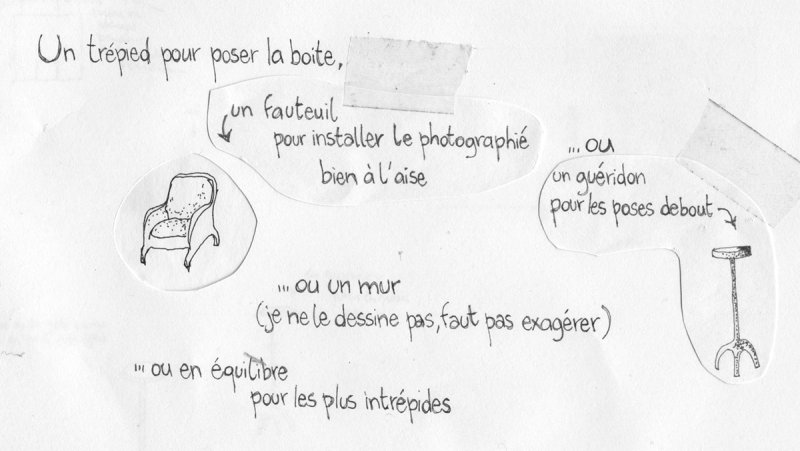 Un trépied pour poser la boite,
un fauteuil
pour installer le photographié
bien à l'aise
... ou
un guéridon
pour les poses debout
... ou un mur
(je ne le dessine pas, faut pas exagérer)
... ou en équilibre
pour les plus intrépides